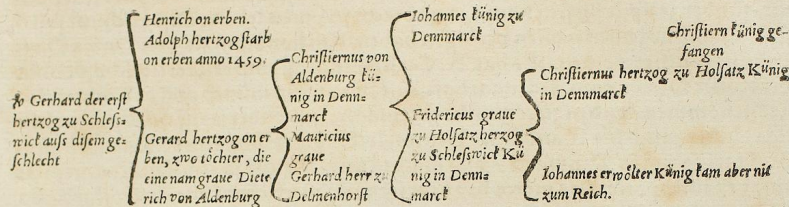 Gerhard der erst
hertzog zu Schlesz=
wick auss disem ge=
schlecht
Henrich on erben.
Adolph hertzog starb
on erben anno 1459.
Gerard hertzog on er
ben, zwo töchter, die
eine nam graue Diete
rich von Aldenburg
Christiernus von
Aldenburg kü=
nig in Denn=
marck
Mauricius
graue
Gerhard herr zu
Delmenhorst
Iohannes künig zu
Dennmarck
Fridericus graue
zu Holsatz herzog
zu Schleswick Kü
nig in Denn=
marck
Christiern künig ge=
fangen
Christiernus hertzog zu Holsatz Künig
in Dennmarck
Iohannes erwölter Künig kam aber nit
zum Reich.